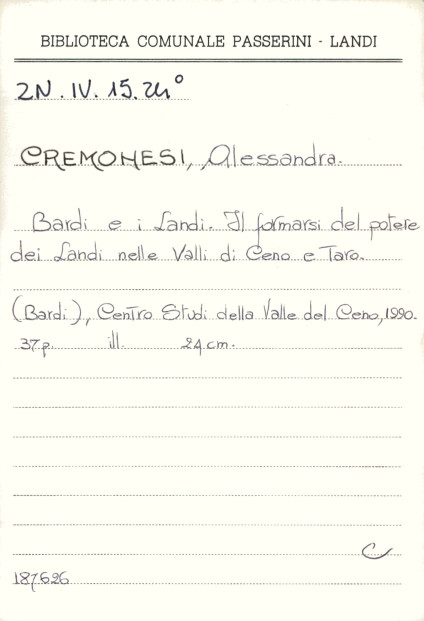 BIBLIOTECA COMUNALE PASSERINI - LANDI
2N. IV. 15. 24°
CREMONESI, Alessandra.
Bardi e i Landi. Il formarsi del potere
dei Landi nelle Valli di Ceno e Taro.
(Bardi), Centro Studi della Valle del Ceno, 1990.
37 p. ill. 24 cm.
C
187626